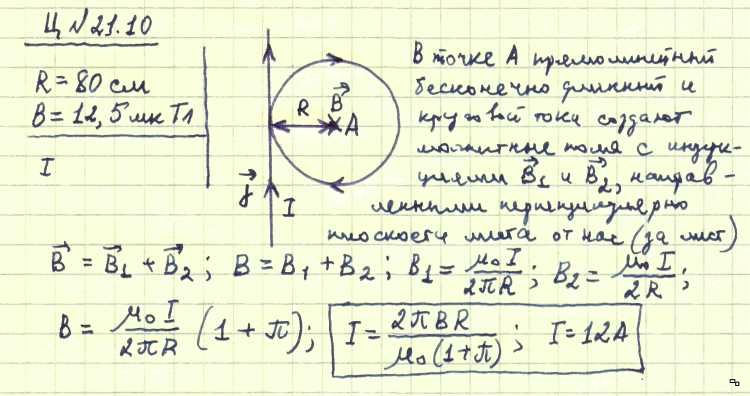 Ц №21.10
R = 80 см
B = 12,5 мкТл
I
R B A
j I
В точке А прямолинейный
бесконечно длинный и
круговой токи создают
магнитные поля с индук-
циями B⃗₁ и B⃗₂, направ-
ленными перпендикулярно
плоскости листа от нас (за лист)
B⃗ = B⃗₁ + B⃗₂; B = B₁ + B₂; B₁ = μ₀I/2πR; B₂ = μ₀I/2R;
B = μ₀I/2πR (1 + π); I = 2πBR/μ₀(1+π); I = 12А